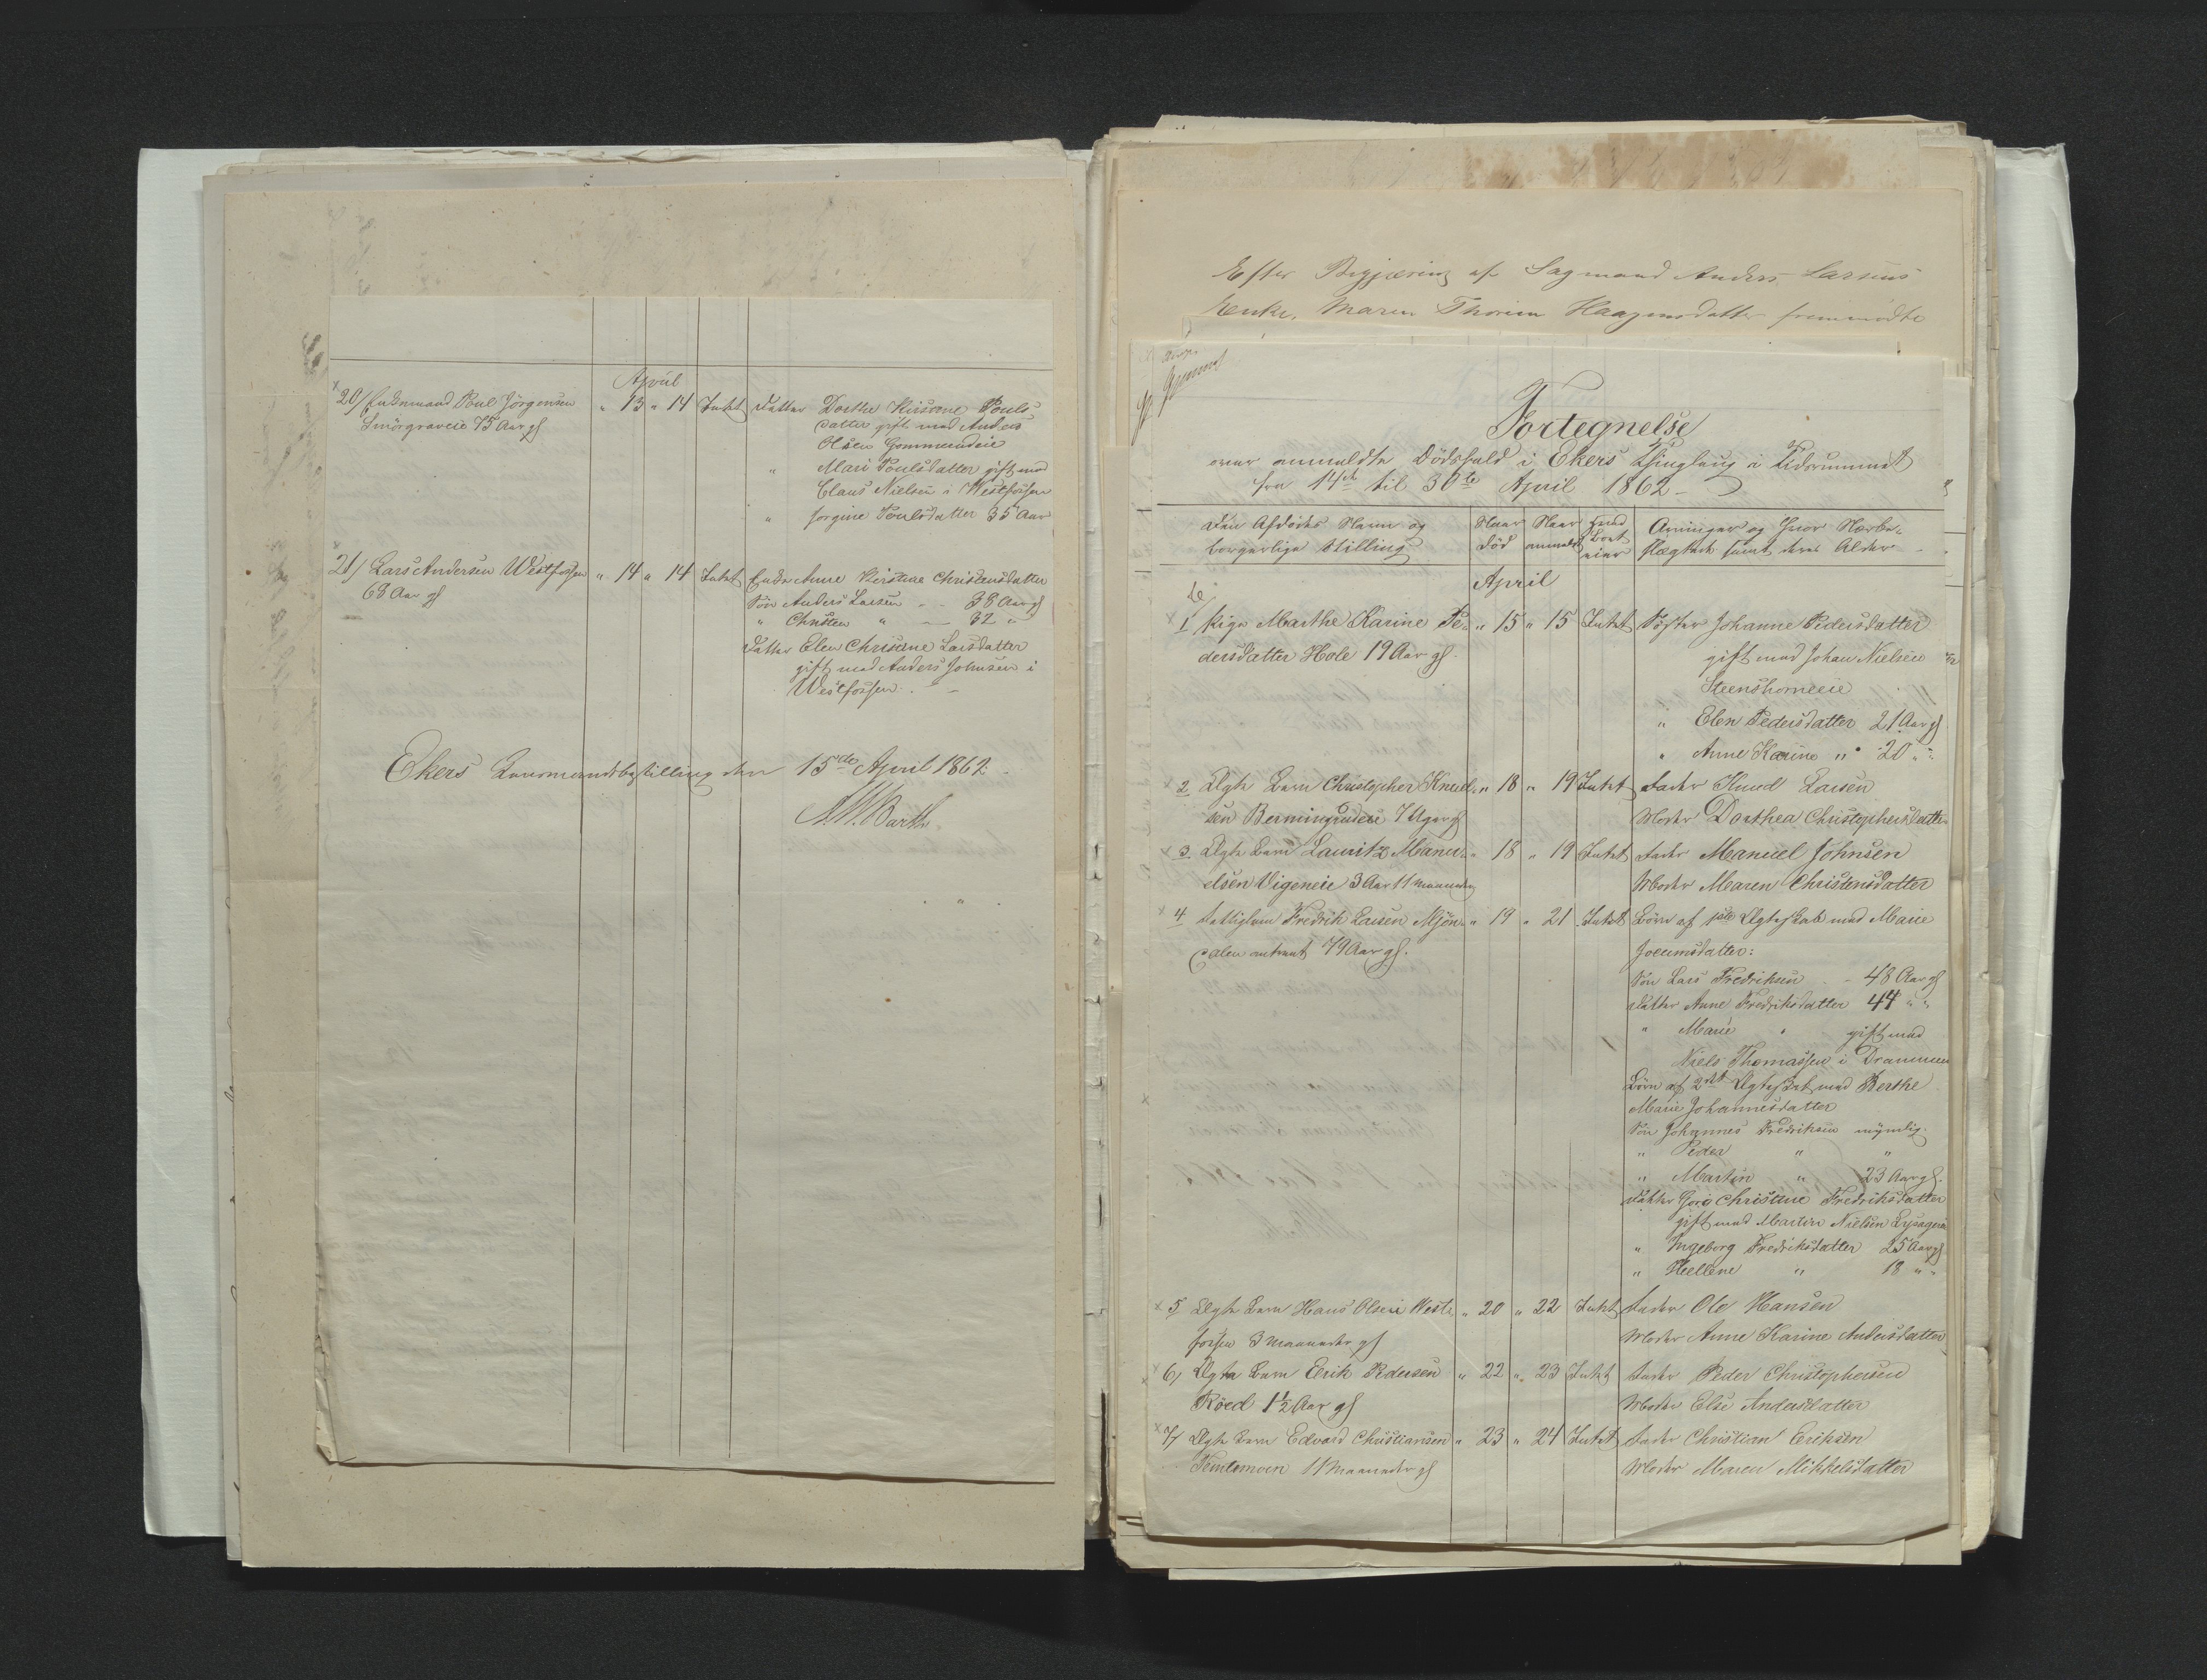 April
20/ Enkemand Poul Jörgensen " 13 " 14 Intet Datter Dorthe Kirstine Pouls
Smörgraveie 75 Aar gl datter gift med Anders
Olsen Gommerudeie
" Mari Poulsdatter gift med
Claus Nielsen i Westfossen
" Jorgine Poulsdatter 35 Aar
21/ Lars Andersen Westfossen " 14 " 14 Intet Enke Anne Kirstine Christensdatter
68 Aar gl Sön Anders Larsen - - 38 Aar gl
" Christen " - 32 "
Datter Elen Christine Larsdatter
gift med Anders Johnsen i
Westfossen.
Ekers Lensmandsbestilling den 15de April 1862.
Barth
Efter Begjæring af Sagmand Anders Larsens
Enke, Maren Haagensdatter fremmødte
Fortegnelse
over anmeldte Dödsfald i Ekers Thinglaug i Tidsrummet
fra 14de til 30te April 1862 -
Den Afdödes Navn og Naar Naar Hvad Arvinger og hvor Nærbe-
borgerlige Stilling död anmeldt Bort eier slægtede samt deres Alder
April
1 Pige Marthe Karine Pe- " 15 " 15 Intet Söster Johanne Pedersdatter
dersdatter Hole 19 Aar gl. gift med Johan Nielsen
Steenshorneeie
" Elen Pedersdatter 21 Aar gl
" Anne Karine " 20 " "
2 Ægte Barn Christopher Knud- " 18 " 19 Intet Fader Knud Larsen
sen Bermingrudeie 7 Uger gl Moder Dorthea Christophersdatter
3. Ægte Barn Lauritz Manu- " 18 " 19 Intet Fader Manuel Johnsen
elsen Vigeneie 3 Aar 11 Maaneder Moder Maren Christensdatter
4 Fattiglem Fredrik Larsen Mjön- " 19 " 21 Intet Börn af 1ste Ægteskab med Marie
dalen omtrent 79 Aar gl. Jocumsdatter:
Sön Lars Fredriksen - 48 Aar gl
Datter Anne Fredriksdatter 44 " "
" Marie " gift med
Niels Thomassen i Drammen
Börn af 2det Ægteskab med Berthe
Marie Johannesdatter
Sön Johannes Fredriksen myndig.
" Peder " "
" Martin " 23 Aar gl.
Datter Christine Fredriksdatter
gift med Martin Nielsen
" Ingeborg Fredriksdatter 25 Aar gl
" Hellene " 18 " "
5 Ægte Barn Hans Olsen West- " 20 " 22 Intet Fader Ole Hansen
fossen 3 Maaneder gl Moder Anne Karine Andersdatter
6, Ægte Barn Erik Pedersen " 22 " 23 Intet Fader Peder Christophersen
Röed 1½ Aar gl Moder Else Andersdatter
7/ Ægte Barn Edvard Christiansen " 23 " 24 Intet Fader Christian Eriksen
11 Maaneder gl Moder Maren Mikkelsdatter